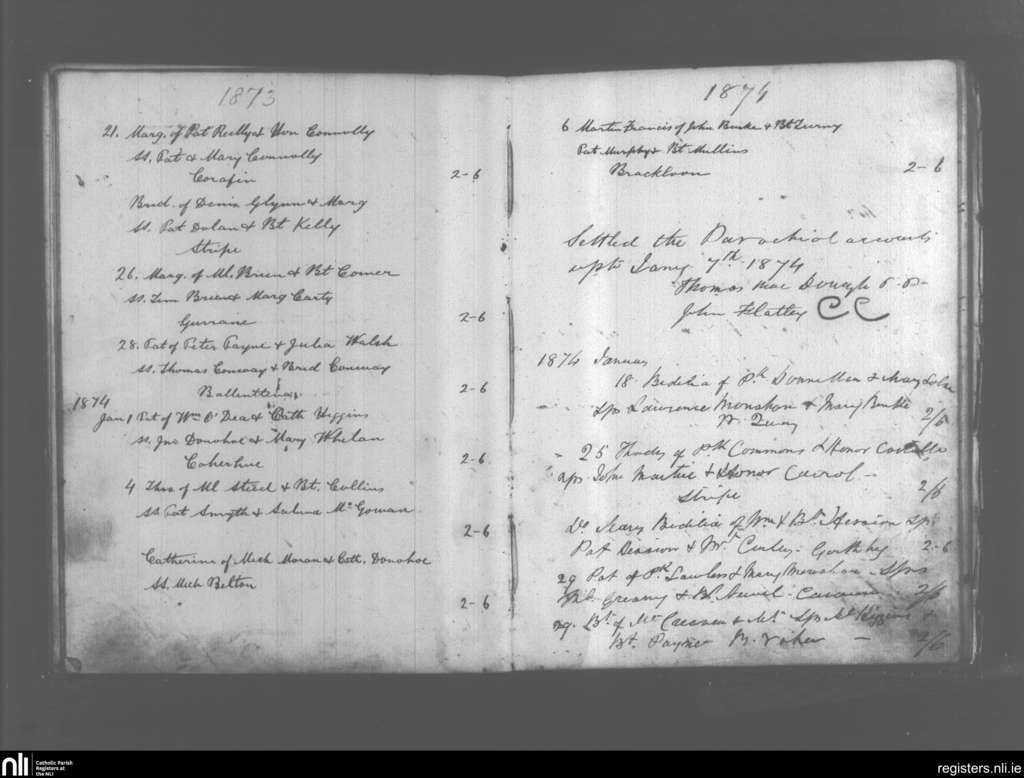 1873
21. Marg. of Pat Reilly & Hon Connolly
ss. Pat & Mary Connolly
Corafin
2-6
Brid. of Denis Glynn & Marg
ss. Pat Dolan & Bt Kelly
Stripe
26. Marg. of Ml. Brien & Bt Comer
ss. Tim Brien & Marg Carty
Gurrane
2-6
28. Pat of Peter Payne & Julia Walsh
ss. Thomas Conway & Brid Conway
2-6
1874
Jan 1 Pat of Wm O'Dea & Cath Higgins
ss. Jno Donohoe & Mary Whelan
Caherhue
2-6
4 Thos of Ml Steed & Bt. Collins
ss Pat Smyth & Salina McGowan
2-6
Catherine of Mich Moran & Cath. Donohoe
ss. Mich Belton
2-6
1874
6 Martin Francis of John Burke & Bt
Pat Murphy & Bt Mullins
Brackloon
2-6
Settled the Parochial accounts
upto Jany 7th 1874
Thomas Mac Donagh P.P.
John Flatley CC
1874 January
18 Bedelia of Pk Donnellan & Mary
Sps Lawrence Monahan & Mary Burke
2/6
25 Thades of Ptk Commons & Honor Costello
sps John & Honor
Stripe
2/6
Do Mary Bedilia of Wm & Bt. Hession Sps
Pat & Mt
2-6
29 Pat of Pk Lawless & Mary Monahan Sps
2/6
29. Bt. of & Mt Sps Higgins &
Bt. Payne
2/6
nli
Catholic Parish
Registers at
the NLI
registers.nli.ie